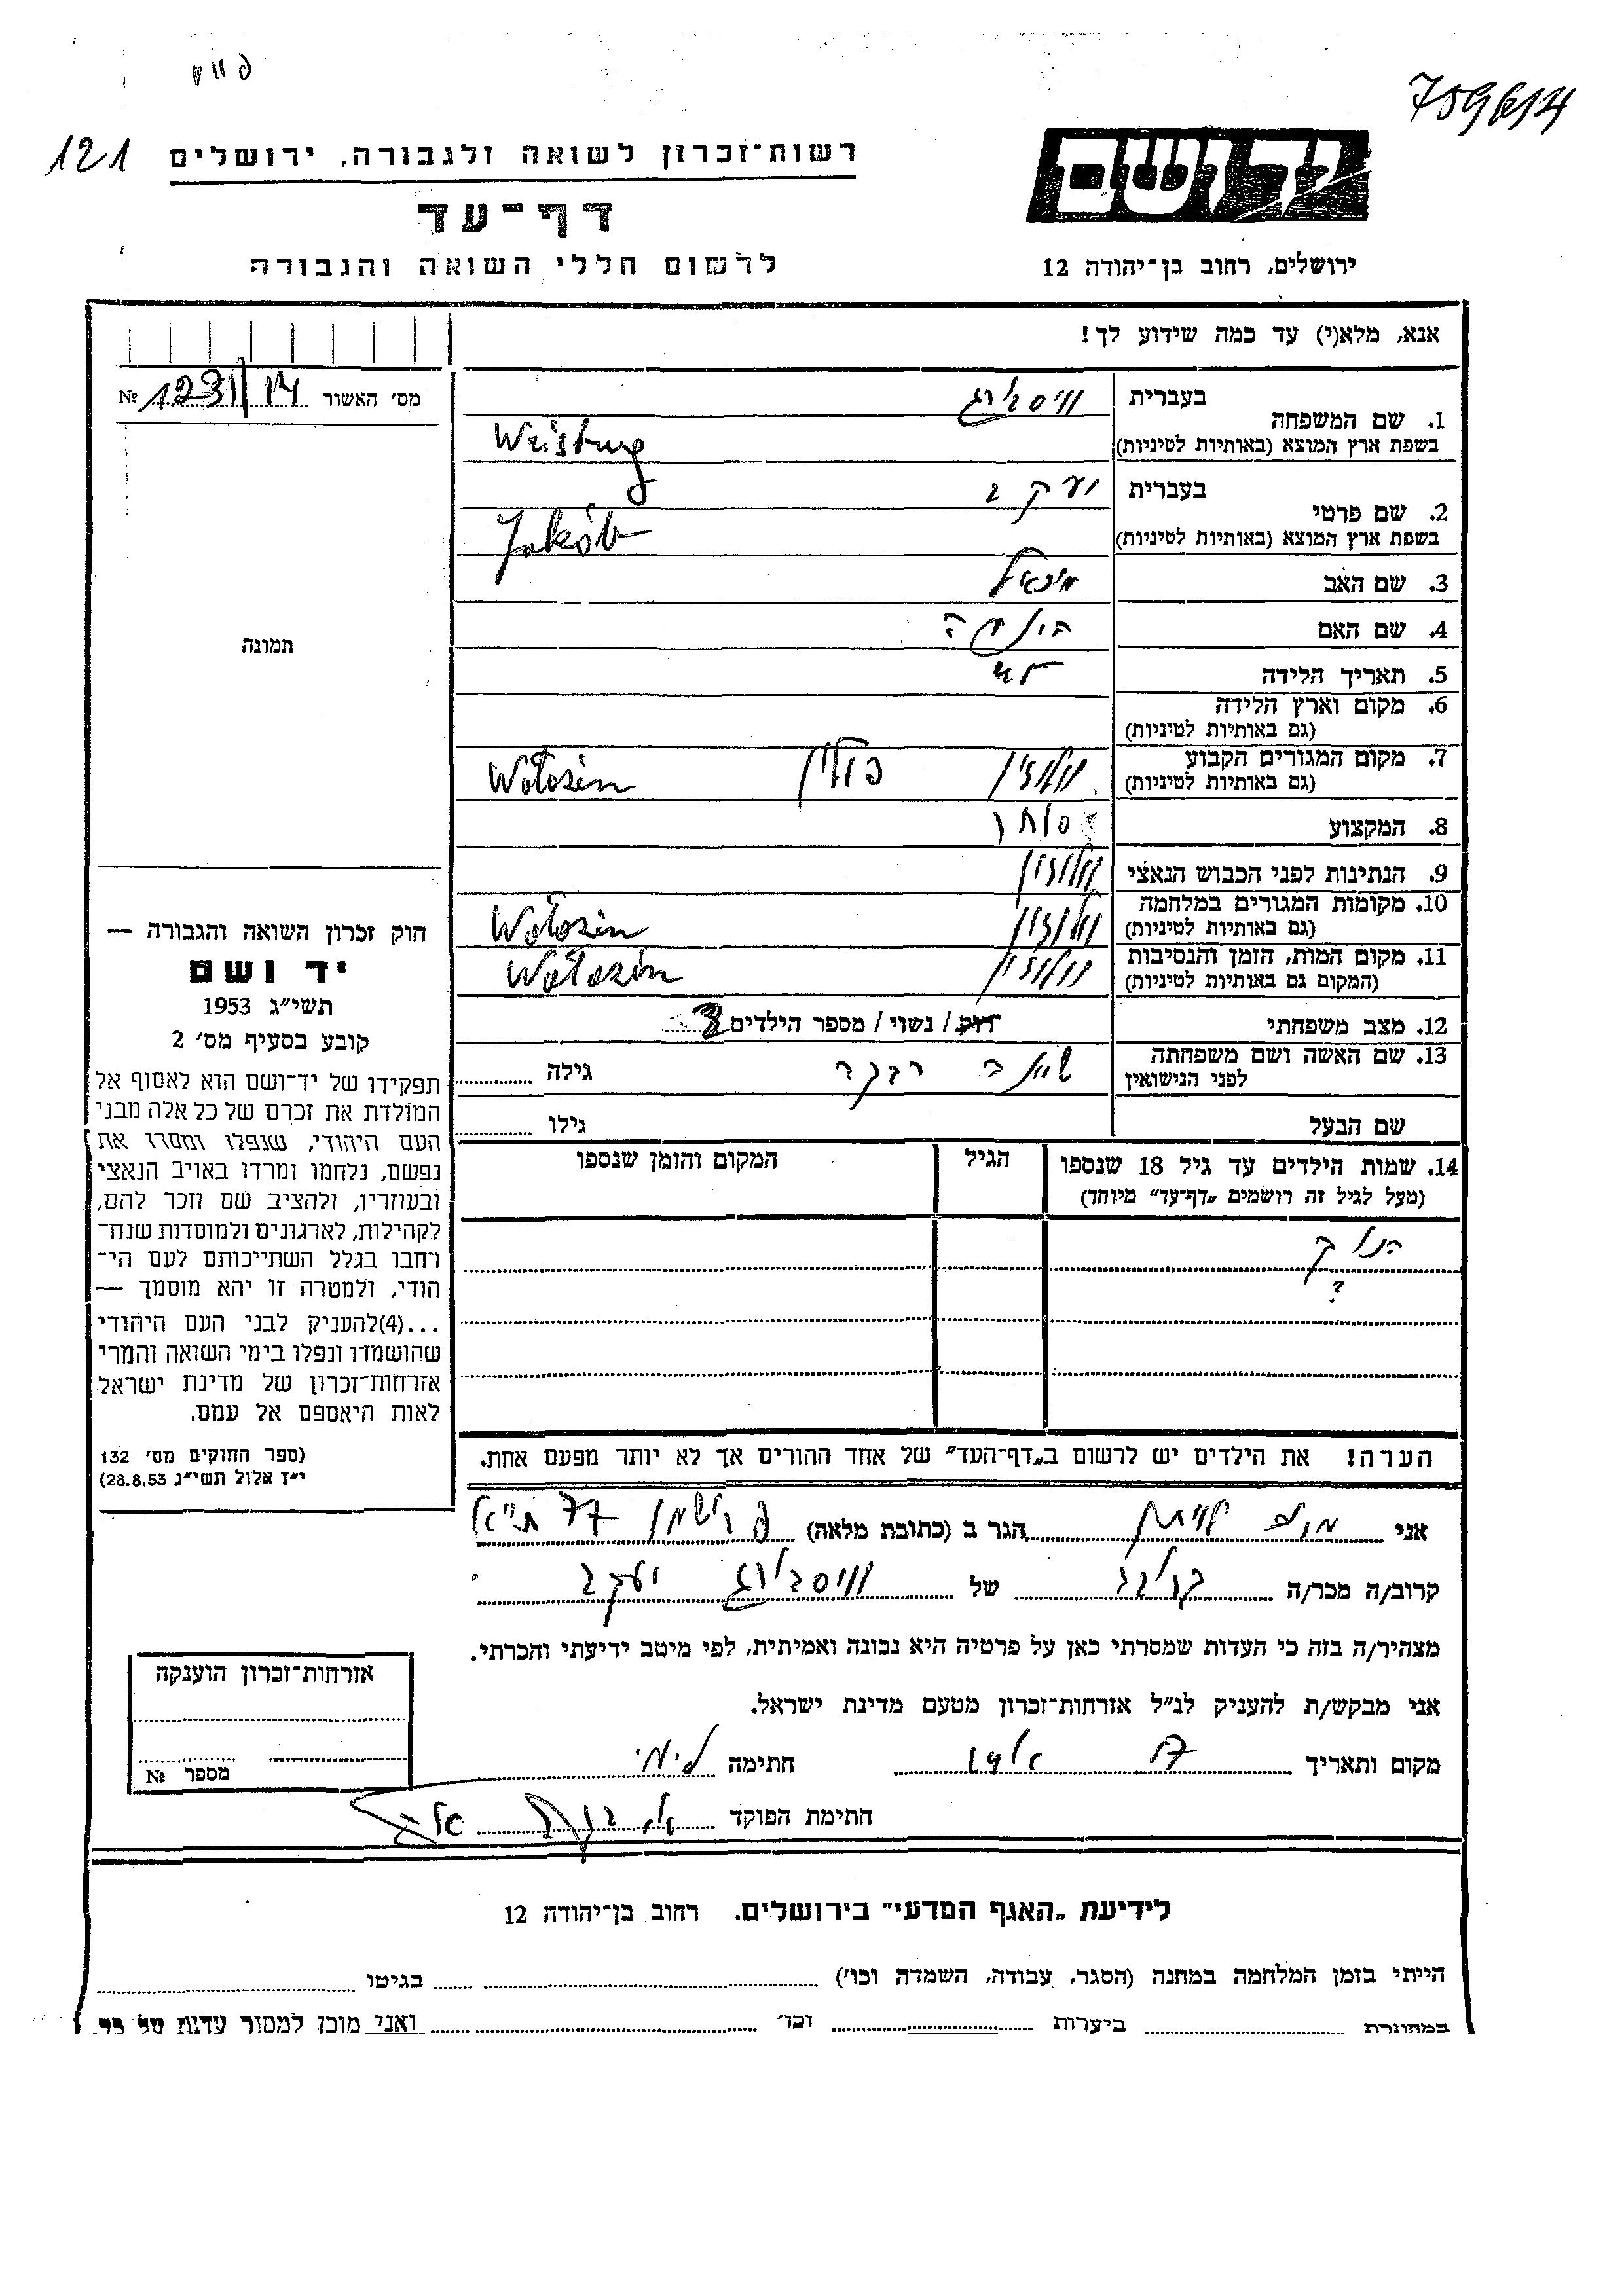 759614
121
רשות־זכרון לשואה ולגבורה, ירושלים
יד ושם
דף־עד
לרשום חללי השואה והגבורה
ירושלים, רחוב בן־יהודה 12
אנא, מלא(י) עד כמה שידוע לך!
מס׳ האשור № 1231/14
1. שם המשפחה בעברית וויסבורג
בשפת ארץ המוצא (באותיות לטיניות) Weisburg
2. שם פרטי בעברית יעקב
בשפת ארץ המוצא (באותיות לטיניות) Jakób
3. שם האב מיכאל
4. שם האם
תמונה
5. תאריך הלידה
6. מקום וארץ הלידה
(גם באותיות לטיניות)
7. מקום המגורים הקבוע וולוזין פולין Wołozin
(גם באותיות לטיניות)
8. המקצוע סוחר
9. הנתינות לפני הכבוש הנאצי וולוזין
10. מקומות המגורים במלחמה וולוזין Wołozin
(גם באותיות לטיניות)
11. מקום המות, הזמן והנסיבות וולוזין Wołozin
(המקום גם באותיות לטיניות)
12. מצב משפחתי רווק / נשוי / מספר הילדים 3
13. שם האשה ושם משפחתה גילה
לפני הנישואין
שם הבעל גילו
14. שמות הילדים עד גיל 18 שנספו הגיל המקום והזמן שנספו
(מעל לגיל זה רושמים „דף־עד” מיוחד)
?
הערה! את הילדים יש לרשום ב„דף־העד” של אחד ההורים אך לא יותר מפעם אחת.
חוק זכרון השואה והגבורה —
יד ושם
תשי״ג 1953
קובע בסעיף מס׳ 2
תפקידו של יד־ושם הוא לאסוף אל
המולדת את זכרם של כל אלה מבני
העם היהודי, שנפלו ומסרו את
נפשם, נלחמו ומרדו באויב הנאצי
ובעוזריו, ולהציב שם וזכר להם,
לקהילות, לארגונים ולמוסדות שנח־
רחבו בגלל השתייכותם לעם הי־
הודי, ולמטרה זו יהא מוסמך —
...(4)להעניק לבני העם היהודי
שהושמדו ונפלו בימי השואה והמרי
אזרחות־זכרון של מדינת ישראל
לאות היאספם אל עמם.
(ספר החוקים מס׳ 132
י״ז אלול תשי״ג 28.8.53)
אני הגר ב (כתובת מלאה) פרישמן 77 ת״א
קרוב/ה מכר/ה של וויסבורג יעקב
מצהיר/ה בזה כי העדות שמסרתי כאן על פרטיה היא נכונה ואמיתית, לפי מיטב ידיעתי והכרתי.
אני מבקש/ת להעניק לנ״ל אזרחות־זכרון מטעם מדינת ישראל.
מקום ותאריך חתימה
חתימת הפוקד
אזרחות־זכרון הוענקה
מספר №
לידיעת „האגף המדעי” בירושלים. רחוב בן־יהודה 12
הייתי בזמן המלחמה במחנה (הסגר, עבודה, השמדה וכו׳) בגיטו
במחתרת ביערות וכו׳ ואני מוכן למסור עדות על כך.